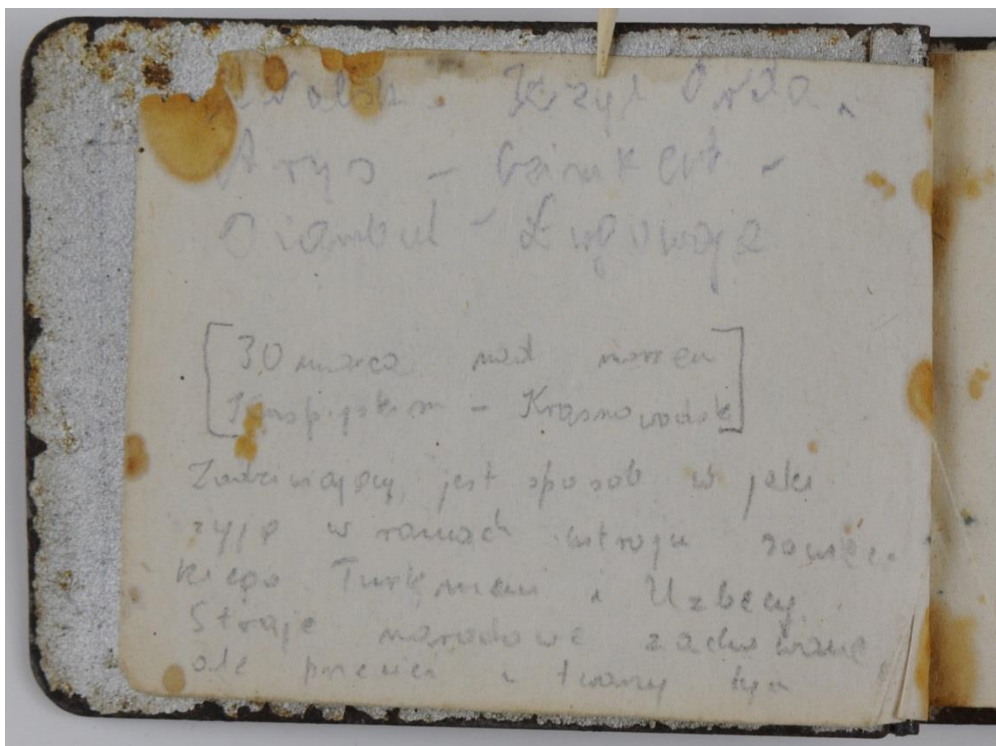 Kzyl Orda,
Arys – Czimkent –
Dżambuł – Ługowaja
[30 marca nad morzem
Kaspijskim – Krasnowodsk]
Zadziwiający jest sposób w jaki
żyją w ramach ustroju sowiec-
kiego Turkmeni i Uzbecy.
Stroje narodowe zachowane,
ale i twarzy tych